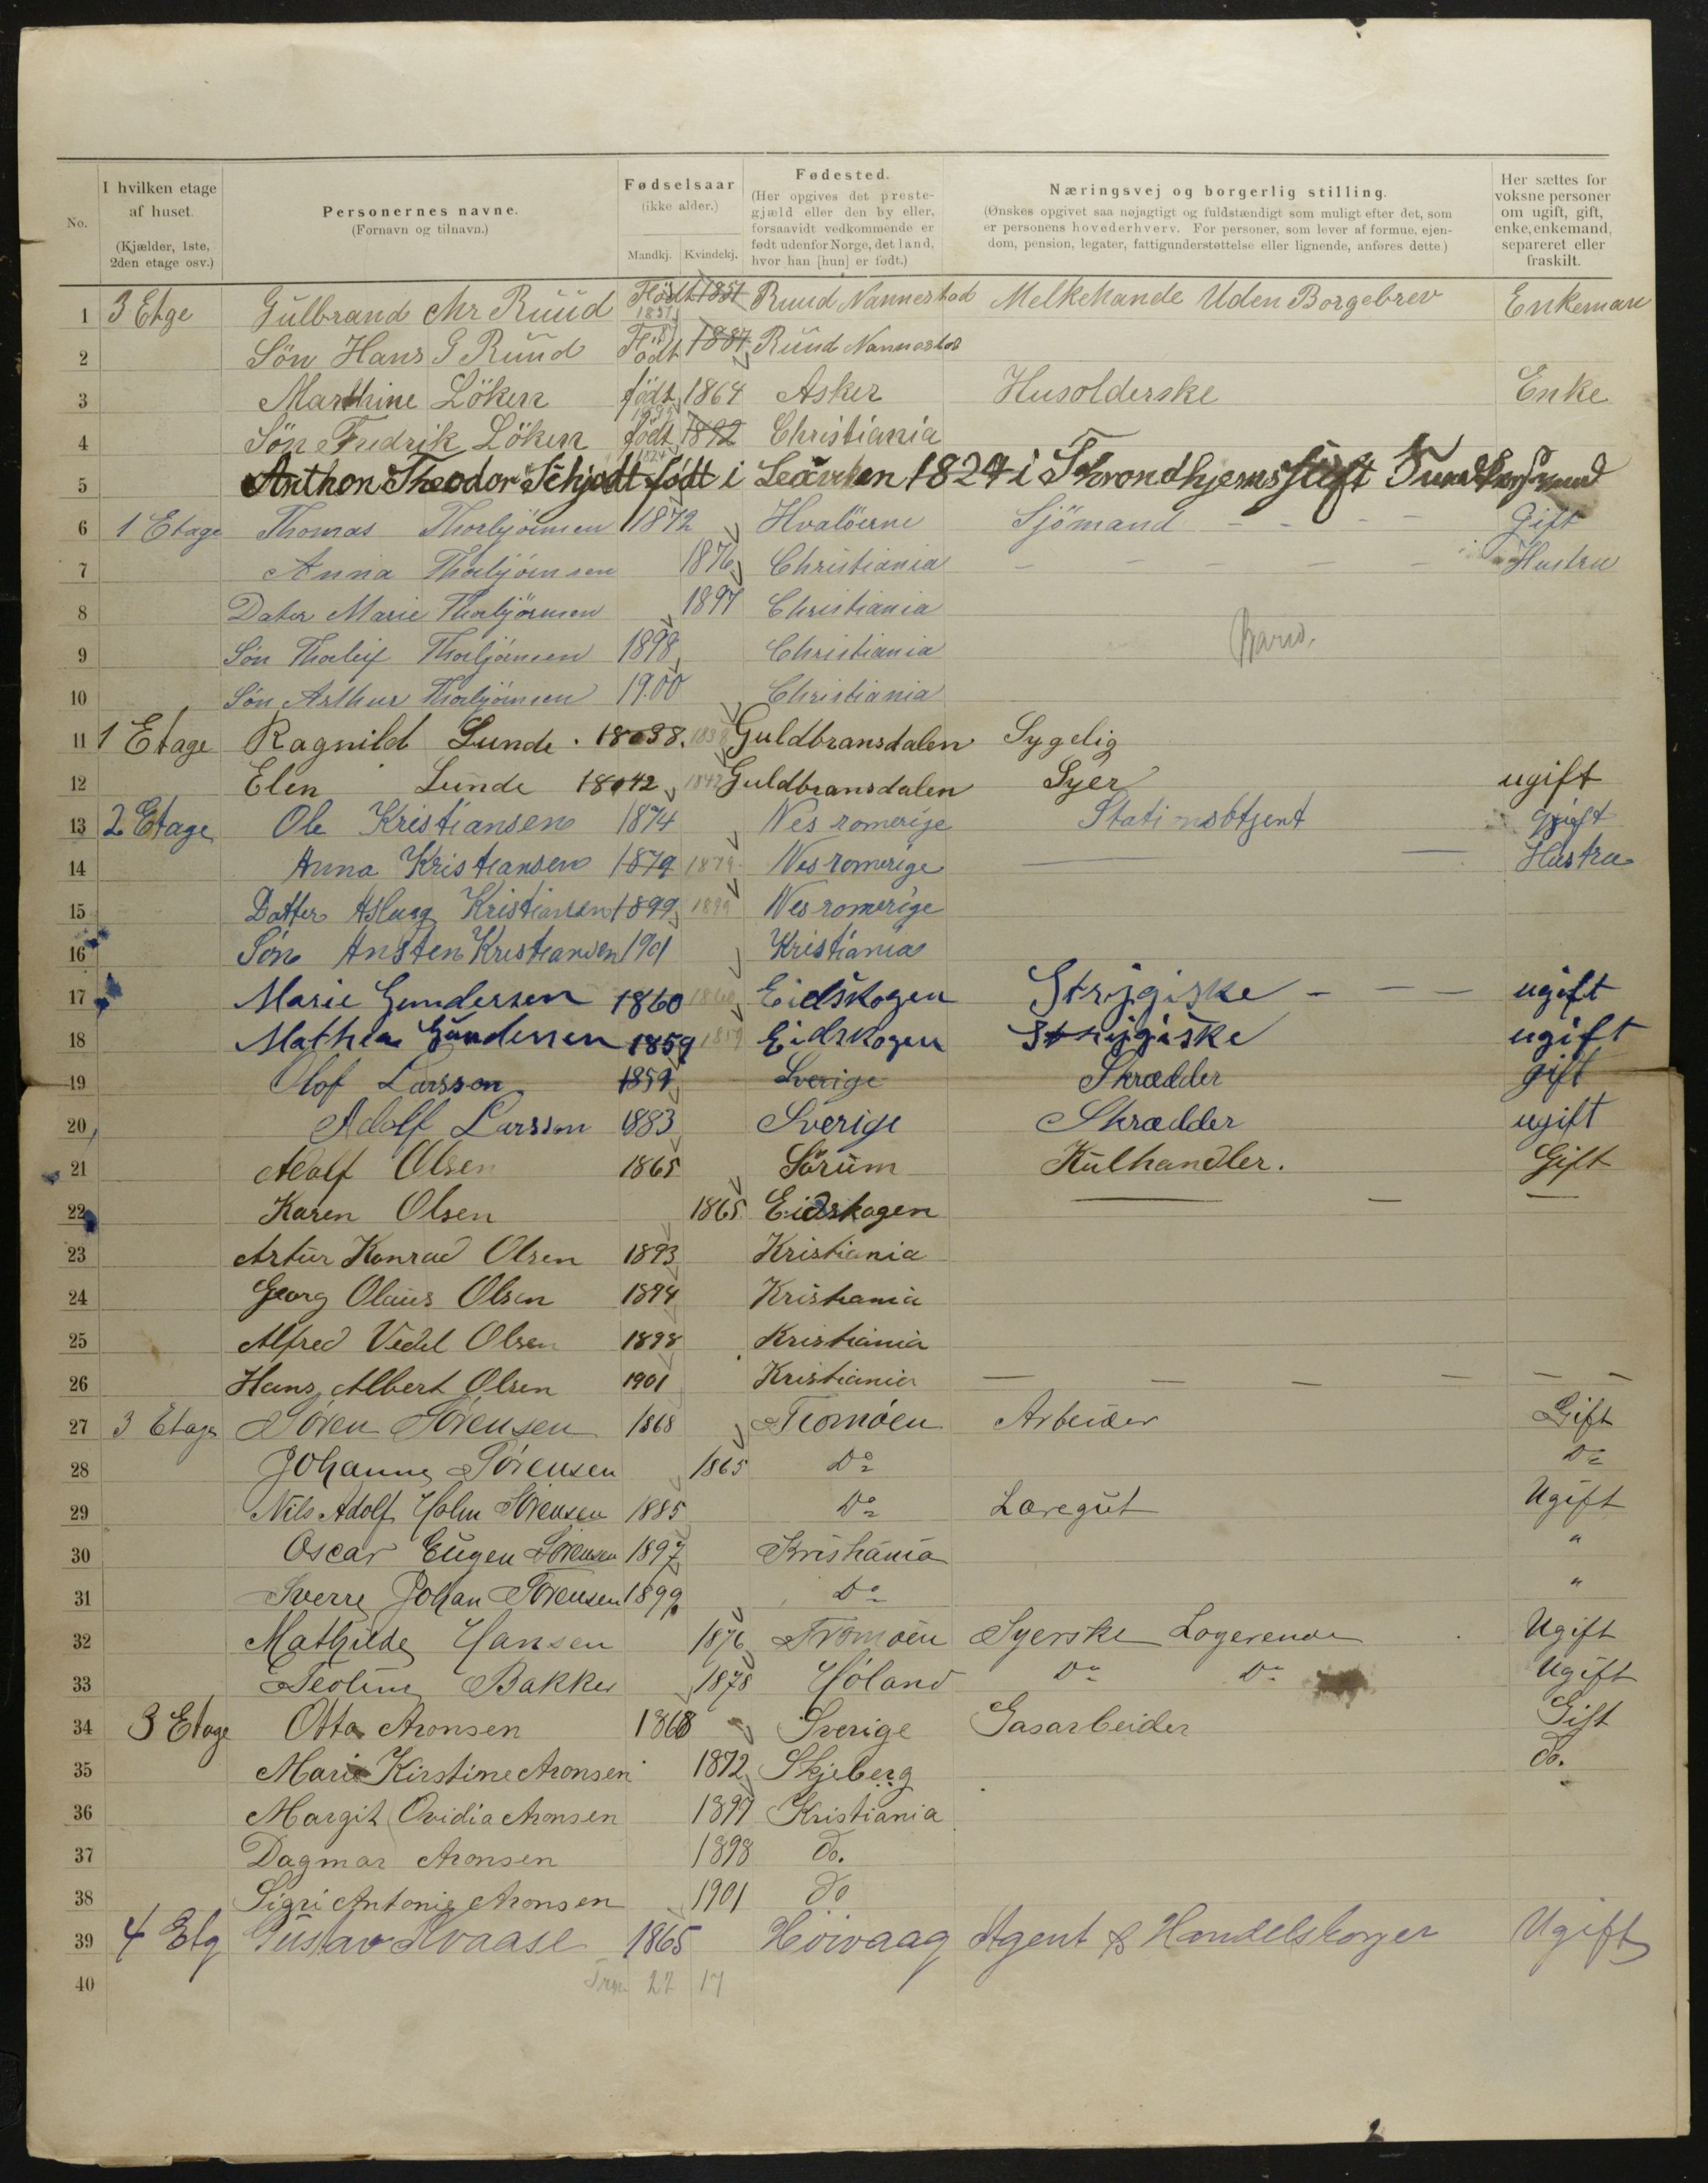 No.
I hvilken etage af huset. (Kjælder, 1ste, 2den etage osv.)
Personernes navne. (Fornavn og tilnavn.)
Fødselsaar (ikke alder.) Mandkj. Kvindekj.
Fødested. (Her opgives det prestegjæld eller den by eller, forsaavidt vedkommende er født udenfor Norge, det land, hvor han [hun] er født.)
Næringsvej og borgerlig stilling. (Ønskes opgivet saa nøjagtigt og fuldstændigt som muligt efter det, som er personens hovederhverv. For personer, som lever af formue, ejendom, pension, legater, fattigunderstøttelse eller lignende, anføres dette.)
Her sættes for voksne personer om ugift, gift, enke, enkemand, separeret eller fraskilt.
1 3 Etge Gulbrand Chr Ruud Födt 1851 1851 Ruud Nannestad Melkehande Uden Borgebrev Enkeman
2 Sön Hans G Ruud Födt 1887 Ruud Nannestad
3 Marthine Löken födt 1864 Asker Husolderske Enke
4 Sön Fredrik Löken födt 1892 Christiania
5 Anthon Theodor Schjödt födt i 1824 i Throndhjems stift
6 1 Etage Thomas Thorbjörnsen 1872 Hvalöerne Sjömand - - - - Gift
7 Anna Thorbjörnsen 1876 Christiania - - - - - Hustru
8 Dater Marie Thorbjörnsen 1897 Christiania
9 Sön Thorleif Thorbjörnsen 1898 Christiania Barn.
10 Sön Arthur Thorbjörnsen 19.00 Christiania
11 1 Etage Ragnild Lunde. 1838. 1838 Guldbransdalen Sygelig
12 Elen Lunde 1842 1842 Guldbransdalen Syer ugift
13 2 Etage Ole Kristiansen 1874 Nes romerige Stationsbtjent Gjift
14 Anna Kristiansen 1879 1879 Nes romerige Hustru
15 Datter Aslaug Kristiansen 1899 1899 Nes romerige
16 Sön Ansten Kristiansen 1901 Kristiania
17 Marie Gundersen 1860 1860 Eidskogen Strygiske - - - ugift
18 Mathea Gundersen 1859 1859 Eidskogen Strygiske ugift
19 Olof Larsson 1859 Sverige Skrædder gift
20 Adolf Larsson 1883 Sverige Skrædder ugift
21 Adolf Olsen 1865 Sörum Kulhandler. Gift
22 Karen Olsen 1865 Eidskogen — — —
23 Artur Konrad Olsen 1893 Kristiania
24 Georg Olaus Olsen 1894 Kristiania
25 Alfred Vedel Olsen 1898 Kristiania
26 Hans Albert Olsen 1901 Kristiania — — — — — —
27 3 Etage Sören Sörensen 1868 Tromöen Arbeider Gift
28 Johanne Sörensen 1865 Do Do
29 Nils Adolf Holm Sörensen 1885 Do Læregut Ugift
30 Oscar Eugen Sörensen 1897 Kristiania "
31 Sverre Johan Sörensen 1899 Do "
32 Mathilde Hansen 1876 Tromöen Syerske Logerende Ugift
33 Teoline Bakke 1878 Höland Do Do Ugift
34 3 Etage Otto Aronsen 1868 Sverige Gasarbeider Gift
35 Marie Kirstine Aronsen 1872 Skjeberg do.
36 Margit Ovidia Aronsen 1897 Kristiania
37 Dagmar Aronsen 1898 do.
38 Sigri Antonie Aronsen 1901 do
39 4 Etg Gustav Kvaase 1865 Hövaag Agent & Handelsborger Ugift
40 22 17